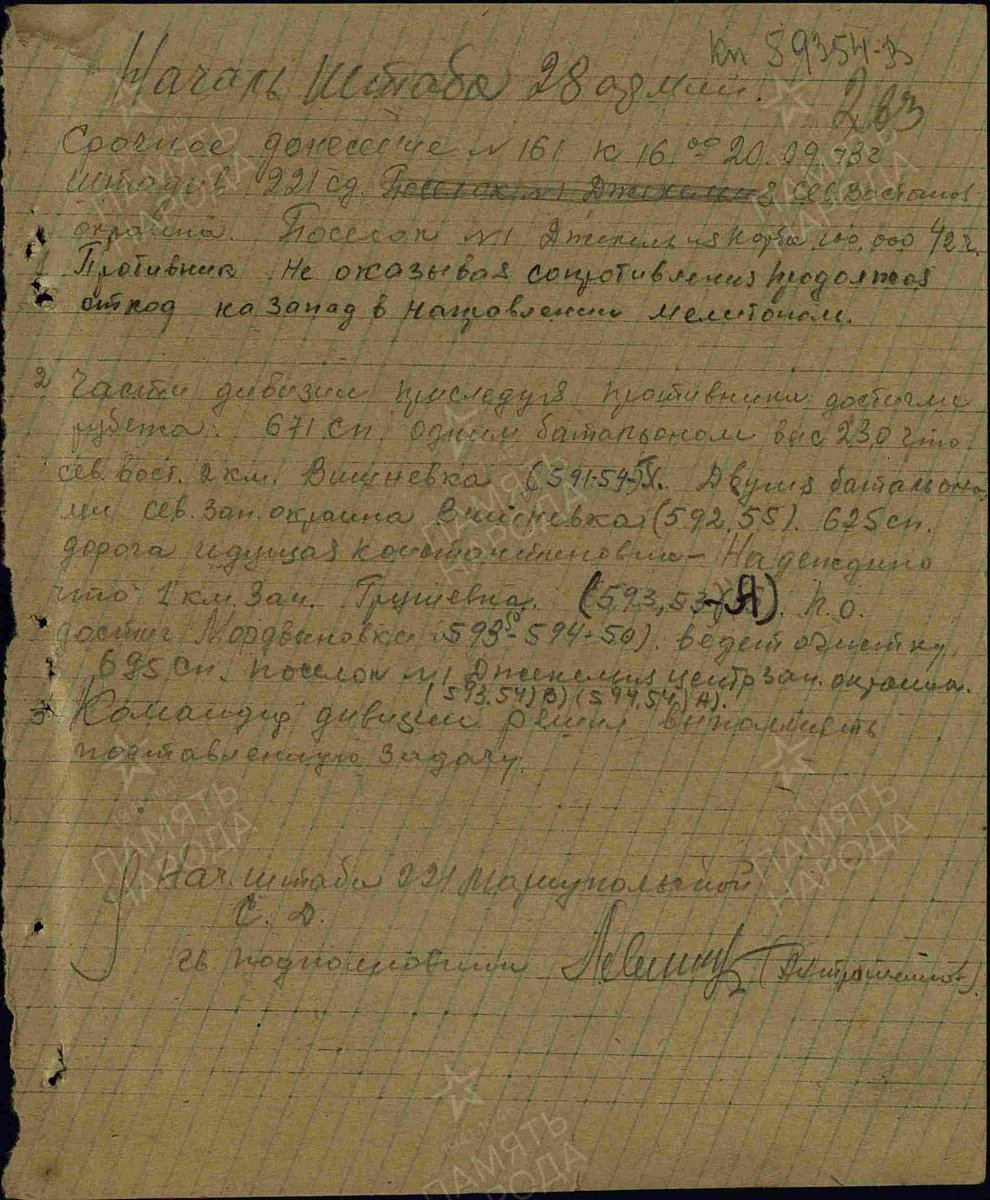 кп 59354-з
Началь штаба 28 армии.
263
Срочное донесение №161 к 16 00 20.09.43г
штадив 221 сд Поселок №1 сев. восточ
окраина. Поселок №1 карта 100,000 42 г.
1 Противник не оказывая сопротивления продолжая
отход на запад в направлении Мелитополь.
2 Части дивизии преследуя противника достигли
рубежа: 671 сп одним батальоном выс 23,0 что
сев. вост. 2 км. Вишневка (591-54 Двумя батальона-
ми сев. зап. окраина Вишневка (592,55). 625 сп.
дорога идущая Константиновка - Надеждино
что 1 км. зап. Грушевка. (593,53-Я) П.О.
достиг Мордвиновка 593-594-50) ведет очистку.
695 сп. поселок №1 центр зап. окраина.
(593.54) В) (594,54) А).
3 Командир дивизии решил выполнять
поставленную задачу.
Нач. штаба 221 Мариупольской
С. Д.
гв. подполковник
ПАМЯТЬ
НАРОДА